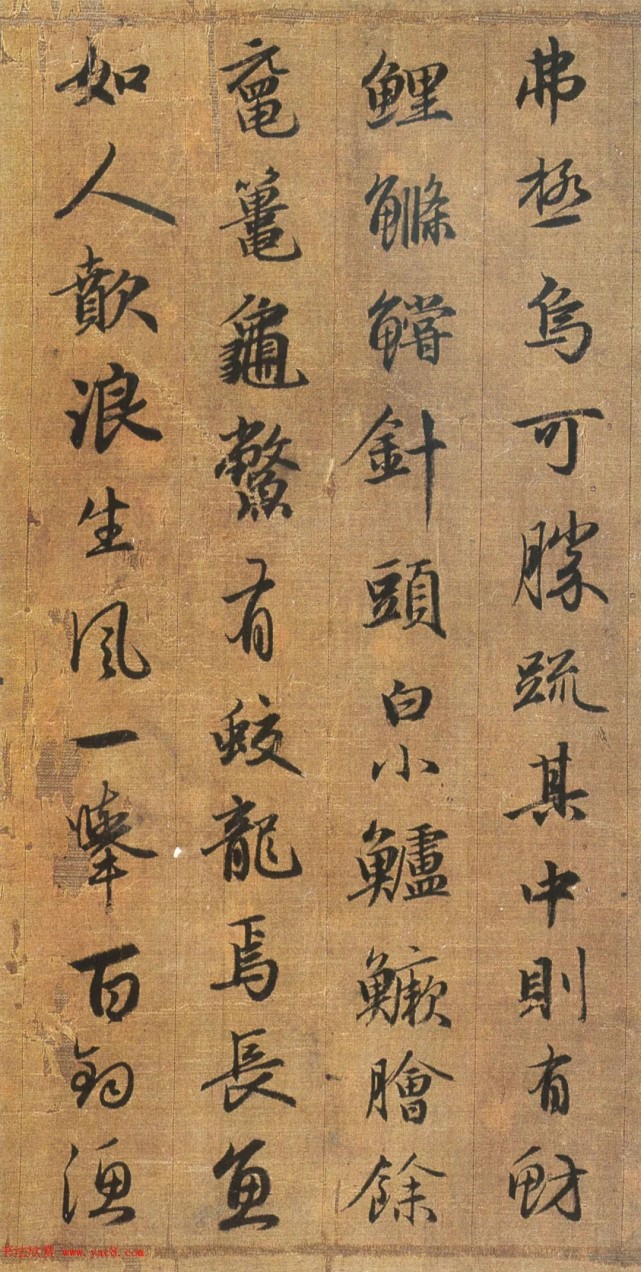 弗極烏可勝疏其中則有
鯉鰷鱨針頭白小鱸鱖膾餘
黿鼉龜鱉有蛟龍焉長魚
如人歕浪生風一舉百鈞漁
书法欣赏 www.yac8.com